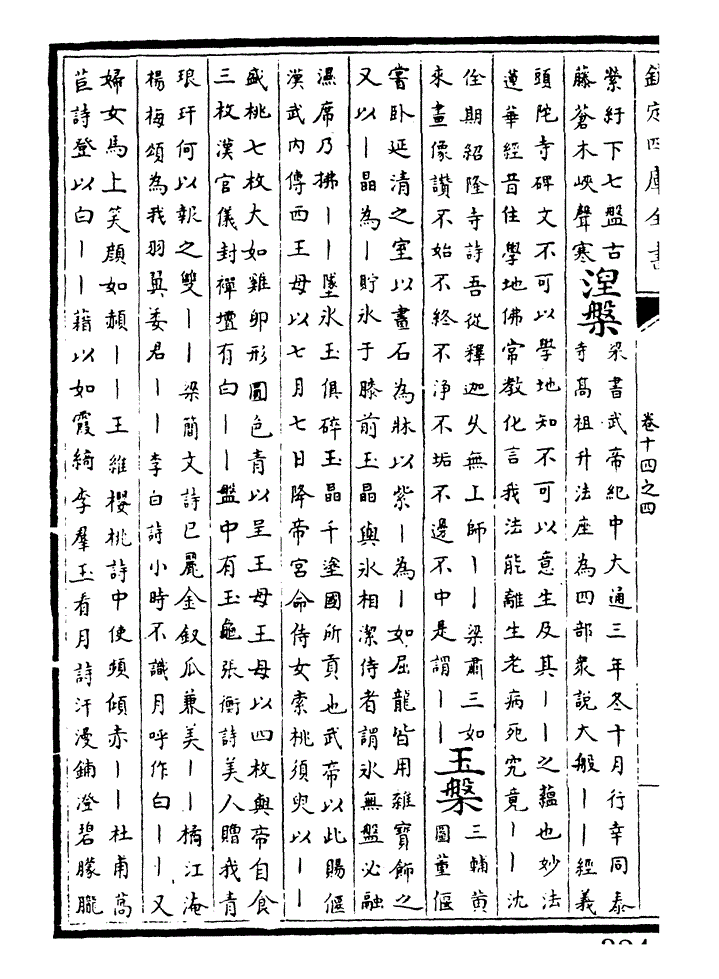 欽定四庫全書
卷十四之四
縈紆下七盤古
藤蒼木峽聲寒
涅槃
梁書武帝紀中大通三年冬十月行幸同泰
寺髙祖升法座為四部衆說大般丨丨經義
頭陀寺碑文不可以學地知不可以意生及其丨丨之藴也妙法
蓮華經昔住學地佛常教化言我法能離生老病死究竟丨丨沈
佺期紹隆寺詩吾從釋迦乆無上師丨丨梁肅三如
來畫像讚不始不終不淨不垢不邊不中是謂丨丨
玉槃
三輔黄
圖董偃
嘗卧延清之室以畫石為牀以紫丨為丨如屈龍皆用雜寶飾之
又以丨晶為丨貯氷于膝前玉晶與氷相潔侍者謂氷無盤必融
濕席乃拂丨丨墜氷玉俱碎玉晶千塗國所貢也武帝以此賜偃
漢武内傳西王母以七月七日降帝宫命侍女索桃須臾以丨丨
盛桃七枚大如雞卵形圓色青以呈王母王母以四枚與帝自食
三枚漢官儀封禪壇有白丨丨盤中有玉龜張衡詩美人贈我青
琅玕何以報之雙丨丨梁簡文詩已麗金釵瓜兼美丨丨橘江淹
楊梅頌為我羽翼委君丨丨李白詩小時不識月呼作白丨丨又
婦女馬上笑顔如赬丨丨王維櫻桃詩中使頻傾赤丨丨杜甫萵
苣詩登以白丨丨藉以如霞綺李羣玉看月詩汗漫鋪澄碧朦朧